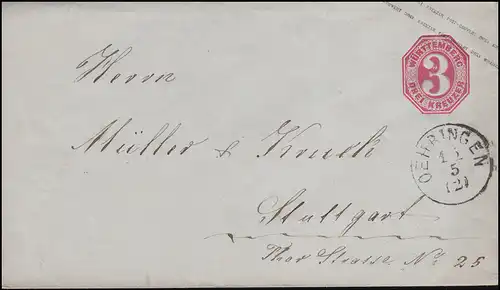 WÜRTTEMBERG
3
DREI KREUZER
Herrn
Müller & Knuck
OEHRINGEN
12
5
(2)
Stuttgart
Thor Strasse No 25